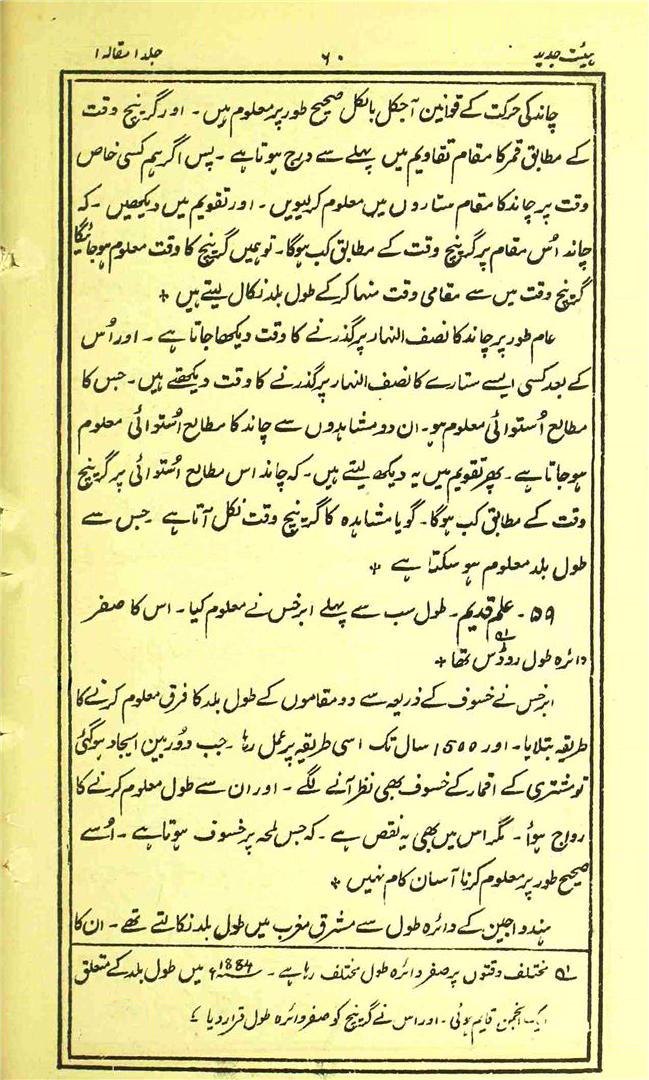 ہیئت جدید ۶۰ جلد ۱ مقالہ ۱
چاند کی حرکت کے قوانین آجکل بالکل صحیح طور پر معلوم ہیں۔ اور گرینچ وقت
کے مطابق قمر کا مقام تقاویم میں پہلے سے درج ہوتا ہے۔ پس اگر ہم کسی خاص
وقت پر چاند کا مقام ستاروں میں معلوم کرلیویں۔ اور تقویم میں دیکھیں۔ کہ
چاند اُس مقام پر گرینچ وقت کے مطابق کب ہوگا۔ تو ہمیں گرینچ کا وقت معلوم ہوجائیگا
گرینچ وقت میں سے مقامی وقت منہا کرکے طول بلد نکال لیتے ہیں ٭
عام طور پر چاند کا نصف النہار پر گذرنے کا وقت دیکھا جاتا ہے۔ اور اُس
کے بعد کسی ایسے ستارے کا نصف النہار پر گذرنے کا وقت دیکھتے ہیں۔ جس کا
مطالع اُستوائی معلوم ہو۔ ان دو مشاہدوں سے چاند کا مطالع اُستوائی معلوم
ہوجاتا ہے۔ پھر تقویم میں یہ دیکھ لیتے ہیں۔ کہ چاند اس مطالع اُستوائی پر گرینچ
وقت کے مطابق کب ہوگا۔ گویا مشاہدہ کا گرینچ وقت نکل آتا ہے۔ جس سے
طول بلد معلوم ہو سکتا ہے ٭
۵۹۔ علم قدیم۔ طول سب سے پہلے ابرخس نے معلوم کیا۔ اس کا صفر
دائرہ طول روڈس لہ تھا ٭
ابرخس نے خسوف کے ذریعہ سے دو مقاموں کے طول بلد کا فرق معلوم کرنے کا
طریقہ بتلایا۔ اور 1500 سال تک اسی طریقہ پر عمل رہا۔ جب دُوربین ایجاد ہوگئی
تو مشتری کے اقمار کے خسوف بھی نظر آنے لگے۔ اور ان سے طول معلوم کرنے کا
رواج ہؤا۔ مگر اس میں بھی یہ نقص ہے۔ کہ جس لمحہ پر خسوف ہوتا ہے۔ اُسے
صحیح طور پر معلوم کرنا آسان کام نہیں ٭
ہندو اجین کے دائرہ طول سے مشرق مغرب میں طول بلد نکالتے تھے۔ ان کا
لہ مختلف وقتوں پر صفر دائرہ طول مختلف رہا ہے۔ 1884ء میں طول بلد کے متعلق
ایک انجمن قایم ہوئی۔ اور اس نے گرینچ کو صفر دائرہ طول قرار دیا ؎